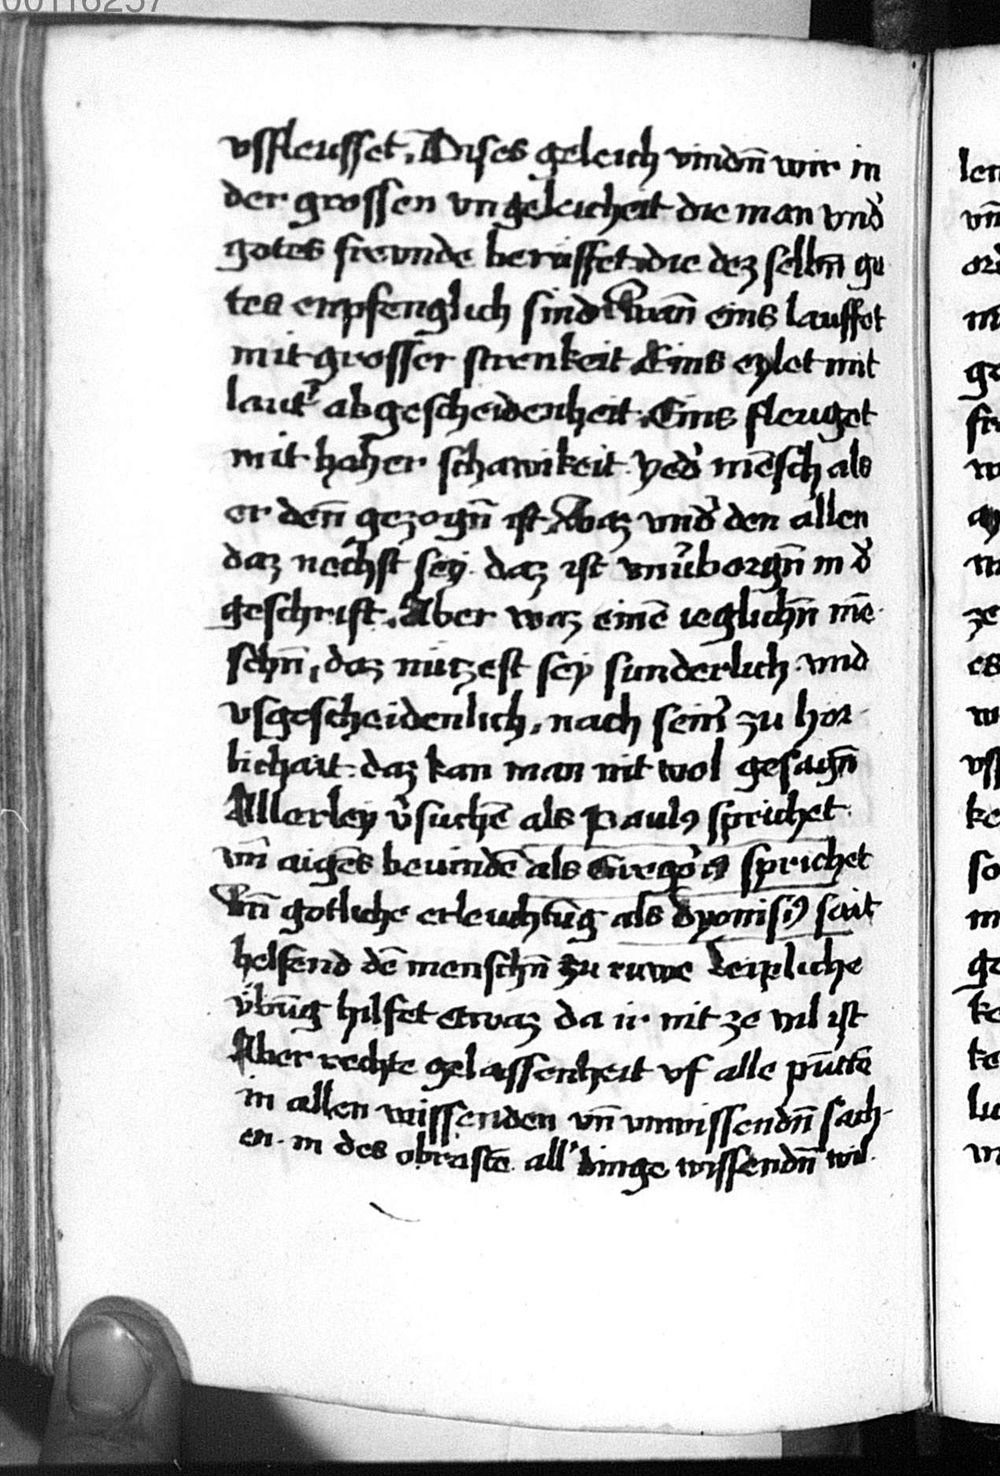 00116257
vsfleusset. Dises geleich vindn̄ wir in
der grossen vngeleicheit die man vnd᾿
gotes freunde berüffet. die dez selbn̄ gu
tes enpfenglich sind wan̄ eins lauffet
mit grosser strenkeit Eins eylet mit
laut᾿ abgescheidenheit. Eins fleuget
mit hoher schawikeit. yed᾿ mēsch als
er den̄ gezogn̄ ist, Waz vnd᾿ den allen
daz nechst sey. daz ist vnu᾿borgn̄ in d᾿
geschrift. Aber waz einē ieglichn̄ mē
schn̄, daz nützest sey sunderlich. vnd
vsgescheidenlich, nach sein᾿ zu hor
lichait. daz kan man nit wol gesagn̄
Allerley v᾿suchē als Paulꝰ sprichet.
vn̄ aigēs bevindē als Gregoriꝰ sprichet
vn̄ gotliche erleuchtūg als dyonisiꝰ sait
helfend dē menschn̄ zu ruwe Leipliche
v́būg hilfet etwaz da ir nit ze vil ist
Aber rechte gelassenheit vf alle pūctē
in allen wissenden vn̄ vnwissendn̄ sach
en. in des obrāstē all᾿ dinge wissendn̄ wil
len
vn̄